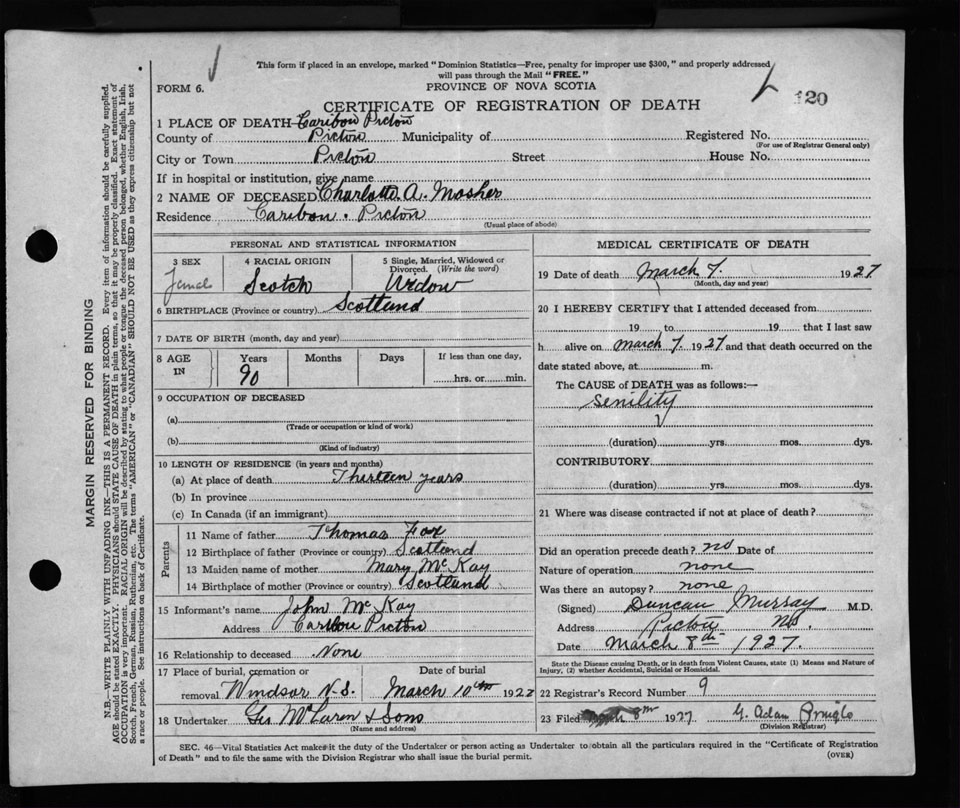 This form if placed in an envelope, marked "Dominion Statistics—Free, penalty for improper use $300," and properly addressed
will pass through the Mail "FREE."
FORM 6.
PROVINCE OF NOVA SCOTIA
120
CERTIFICATE OF REGISTRATION OF DEATH
1 PLACE OF DEATH Caribou Pictou
County of Pictou Municipality of Registered No.
(For use of Registrar General only)
City or Town Pictou Street House No.
If in hospital or institution, give name
2 NAME OF DECEASED Charlotte A. Mosher
Residence Caribou. Pictou
(Usual place of abode)
PERSONAL AND STATISTICAL INFORMATION
3 SEX 4 RACIAL ORIGIN 5 Single, Married, Widowed or
Divorced. (Write the word)
Female Scotch Widow
6 BIRTHPLACE (Province or country) Scotland
7 DATE OF BIRTH (month, day and year)
8 AGE IN Years Months Days If less than one day,
90 hrs. or min.
9 OCCUPATION OF DECEASED
(a)
(Trade or occupation or kind of work)
(b)
(Kind of industry)
10 LENGTH OF RESIDENCE (in years and months)
(a) At place of death Thirteen years
(b) In province
(c) In Canada (if an immigrant)
Parents
11 Name of father Thomas Fox
12 Birthplace of father (Province or country) Scotland
13 Maiden name of mother Mary McKay
14 Birthplace of mother (Province or country) Scotland
15 Informant's name John McKay
Address Caribou Pictou
16 Relationship to deceased None
17 Place of burial, cremation or Date of burial
removal Windsor N.S. March 10th 1927
18 Undertaker Geo McLaren & Sons
(Name and address)
MEDICAL CERTIFICATE OF DEATH
19 Date of death March 7. 1927
(Month, day and year)
20 I HEREBY CERTIFY that I attended deceased from
19 to 19 that I last saw
h alive on March 7 1927 and that death occurred on the
date stated above, at m.
The CAUSE of DEATH was as follows:—
Senility
(duration) yrs. mos. dys.
CONTRIBUTORY
(duration) yrs. mos. dys.
21 Where was disease contracted if not at place of death?
Did an operation precede death? no Date of
Nature of operation none
Was there an autopsy? none
(Signed) Duncan Murray M.D.
Address Pictou NS.
Date March 8th 1927.
State the Disease causing Death, or in death from Violent Causes, state (1) Means and Nature of
Injury, (2) whether Accidental, Suicidal or Homicidal.
22 Registrar's Record Number 9
23 Filed 8th 1927 G. Adam Pringle
(Division Registrar)
SEC. 46—Vital Statistics Act makes it the duty of the Undertaker or person acting as Undertaker to obtain all the particulars required in the "Certificate of Registration
of Death" and to file the same with the Division Registrar who shall issue the burial permit.
(OVER)
MARGIN RESERVED FOR BINDING
N.B.—WRITE PLAINLY WITH UNFADING INK—THIS IS A PERMANENT RECORD. Every item of information should be carefully supplied.
AGE should be stated EXACTLY. PHYSICIANS should STATE CAUSE OF DEATH in plain terms, so that it may be properly classified. Exact statement of
OCCUPATION is very important. RACIAL ORIGIN will be described by stating to what people or tongue the deceased person belonged, whether English, Irish,
Scotch, French, German, Russian, Ruthenian, etc. The terms "AMERICAN" or "CANADIAN" SHOULD NOT BE USED as they express citizenship but not
a race or people. See instructions on back of Certificate.